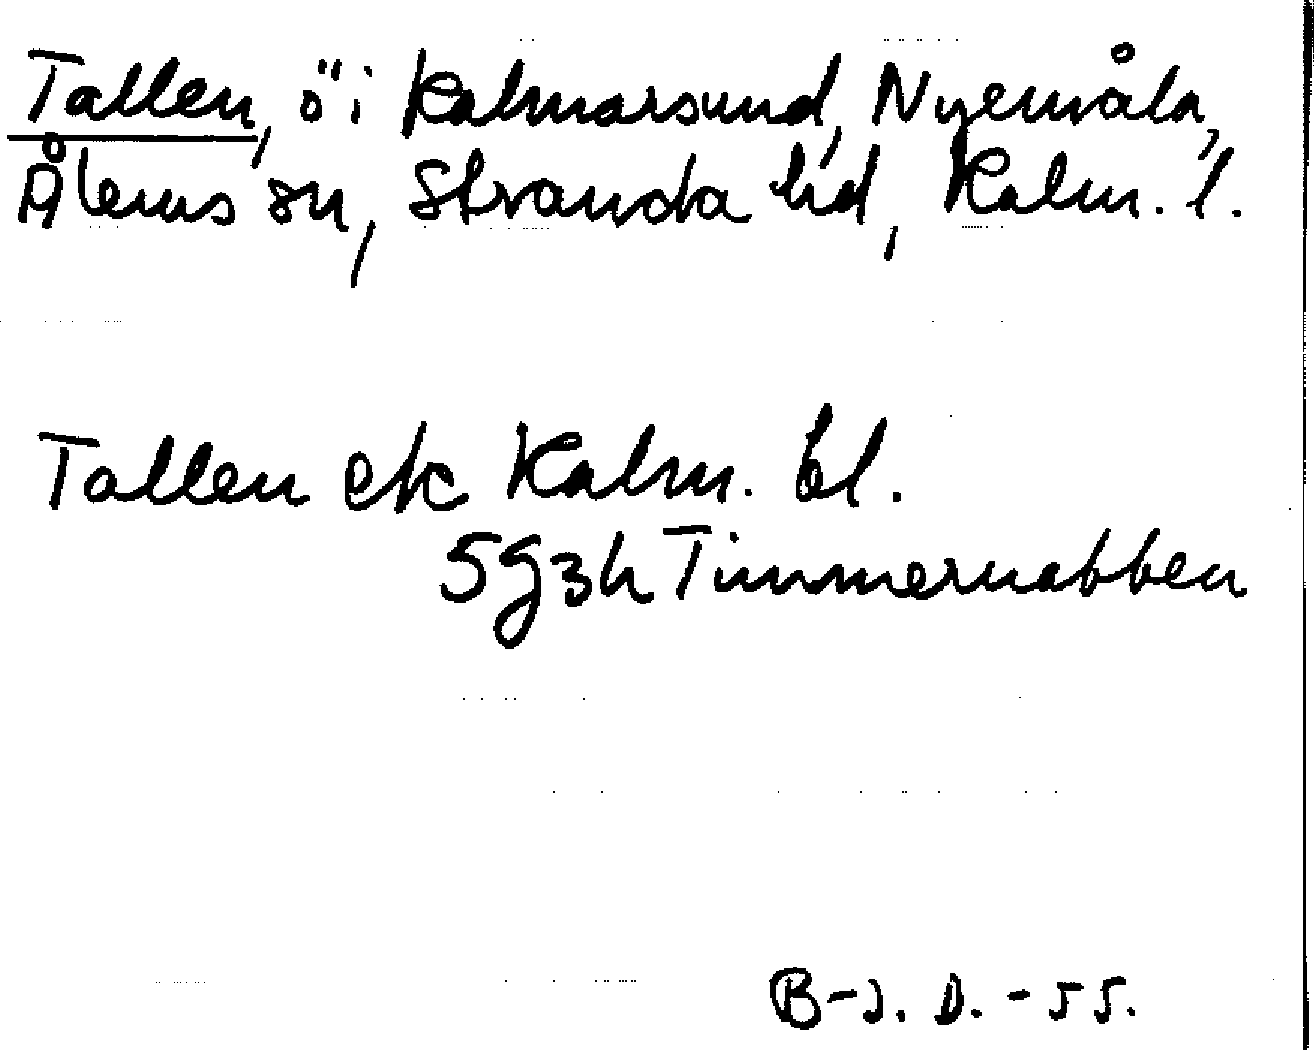 Tallen, ö i Kalmarsund, Nyemåla,
Ålems sn, Stranda hd, Kalm. l.
Tallen ek Kalm. bl.
5g3h Timmernabben
B-J. D. -55.